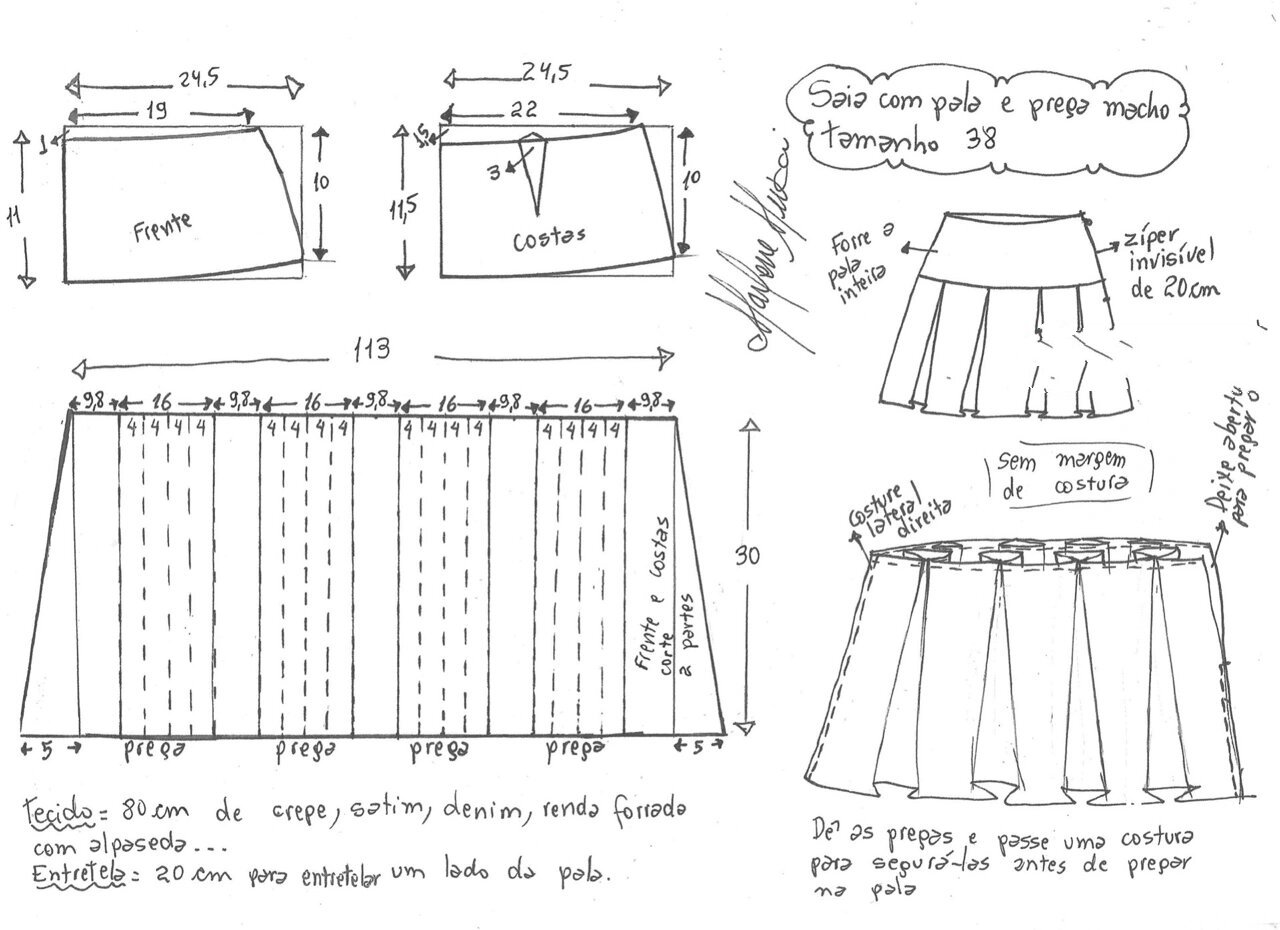 24,5
19
1
11
10
Frente
24,5
22
1,5
3
11,5
10
Costas
Saia com pala e prega macho
tamanho 38
Forre a
pala
inteira
zíper
invisível
de 20cm
113
9,8 16 9,8 16 9,8 16 9,8 16 9,8
4 4 4 4 4 4 4 4 4 4 4 4 4 4 4 4
30
Frente e costas
corte
2 partes
5 prega prega prega prega 5
sem margem
de costura
costure
lateral
direita
Deixe abertu
para pregar o
Tecido = 80 cm de crepe, satim, denim, renda forrada
com alpaseda...
Entretela = 20 cm para entretelar um lado da pala.
Dê as pregas e passe uma costura
para segurá-las antes de pregar
na pala